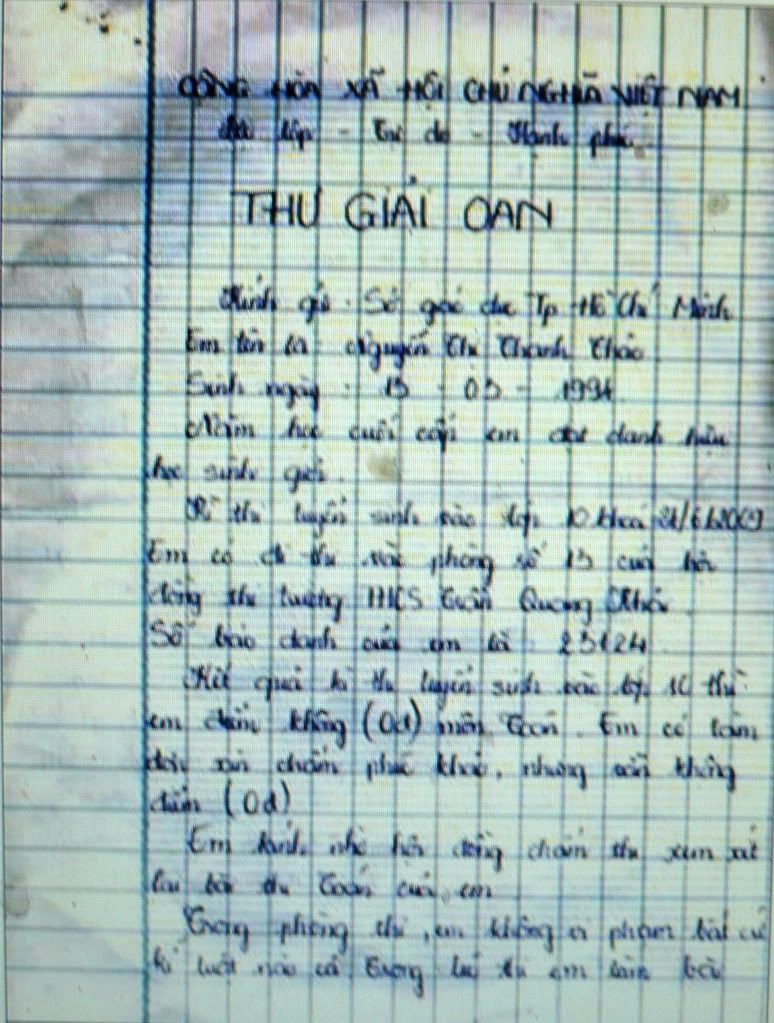 CỘNG HÒA XÃ HỘI CHỦ NGHĨA VIỆT NAM
Độc lập - Tự do - Hạnh phúc
THƯ GIẢI OAN
Kính gửi : Sở giáo dục Tp Hồ Chí Minh
Em tên là Nguyễn Thị Thanh Thảo
Sinh ngày : 15 - 03 - 1994
Năm học cuối cấp em đạt danh hiệu
học sinh giỏi.
Kì thi tuyển sinh vào lớp 10 khoá 21/6/2009
Em có đi thi vào phòng số 15 của hội
đồng thi trường THCS Trần Quang Khải.
Số báo danh của em là : 25124
Kết quả kì thi tuyển sinh vào lớp 10 thì
em điểm không (0đ) môn Toán. Em có làm
đơn xin chấm phúc khảo, nhưng vẫn không
điểm (0đ)
Em kính nhờ hội đồng chấm thi xem xét
lại bài thi Toán của em
Trong phòng thi, em không vi phạm bất cứ
kỉ luật nào cả trong lúc thi em làm bài